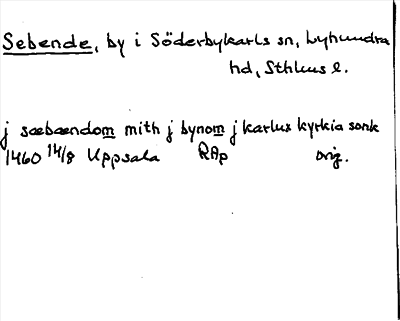 Sebende, by i Söderbykarls sn, Lyhundra
hd, Sthlms l.
j sæbændom mith j bynom j karlux kyrkia sonk
1460 14/8 Uppsala RAp orig.